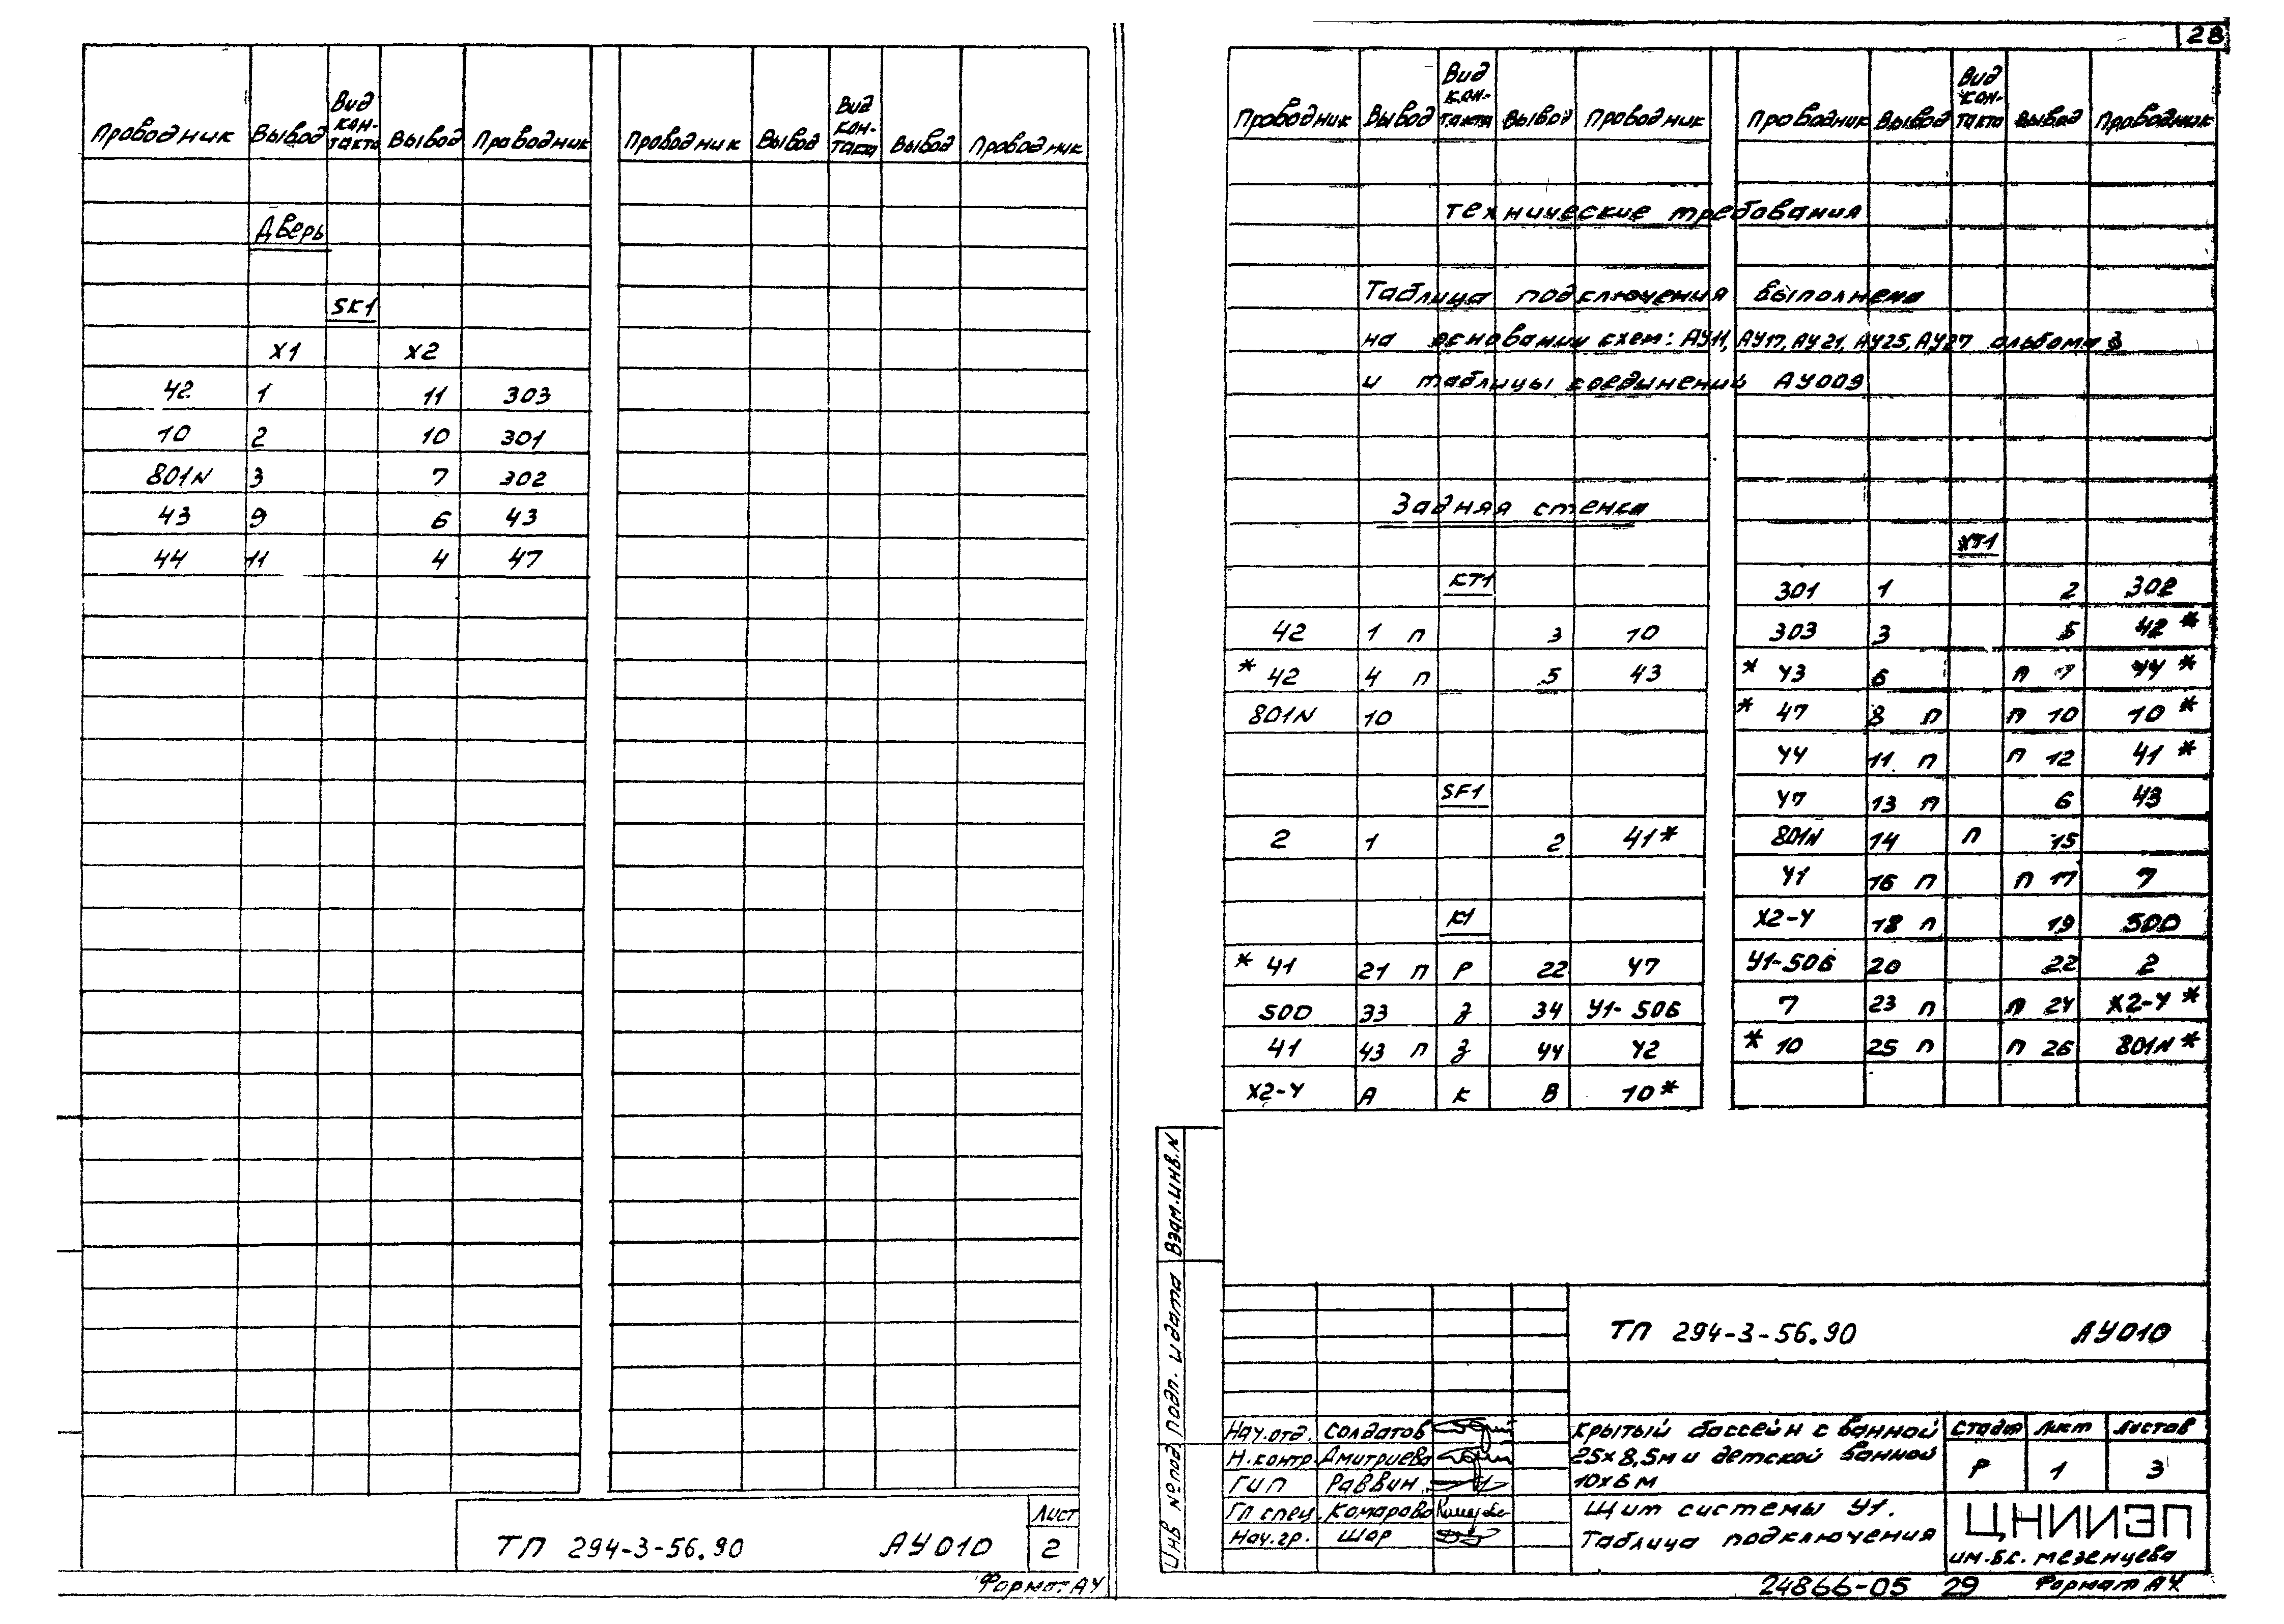 Проводник Вывод Вид контакта Вывод Проводник Проводник Вывод Вид контакта Вывод Проводник
Дверь
SK1
X1 X2
42 1 11 303
10 2 10 301
801N 3 7 302
43 9 6 43
44 11 4 47
ТП 294-3-56.90 АУ010
Лист
2
Формат А4
28
Проводник Вывод Вид контакта Вывод Проводник Проводник Вывод Вид контакта Вывод Проводник
Технические требования
Таблица подключения выполнена
на основании схем: АУ11, АУ17, АУ21, АУ25, АУ27 альбома 3
и таблицы соединений АУ009
Задняя стенка
KT1
42 1 п 3 10
* 42 4 п 5 43
801N 10
SF1
2 1 2 41*
K1
* 41 21 п Р 22 47
500 33 З 34 У1-506
41 43 п З 44 42
X2-4 А К В 10*
XT1
301 1 2 302
303 3 5 42*
* 43 6 п 7 44*
* 47 8 п п 10 10*
44 11 п п 12 41*
47 13 п 6 43
801N 14 п 15
41 16 п п 17 7
X2-4 18 п 19 500
У1-506 20 22 2
7 23 п п 24 X2-4*
* 10 25 п п 26 801N*
Взам.инв.N
Подп. и дата
Инв №подл
ТП 294-3-56.90 АУ010
Нач.отд. Солдатов
Н.контр. Дмитриева
ГИП Раввин
Гл спец. Комарова
Нач.гр. Шор
Крытый бассейн с ванной
25х8,5м и детской ванной
10х6 м
Щит системы У1.
Таблица подключения
Стадия Лист Листов
Р 1 3
ЦНИИЭП
им.Б.С. Мезенцева
24866-05 29 Формат А4